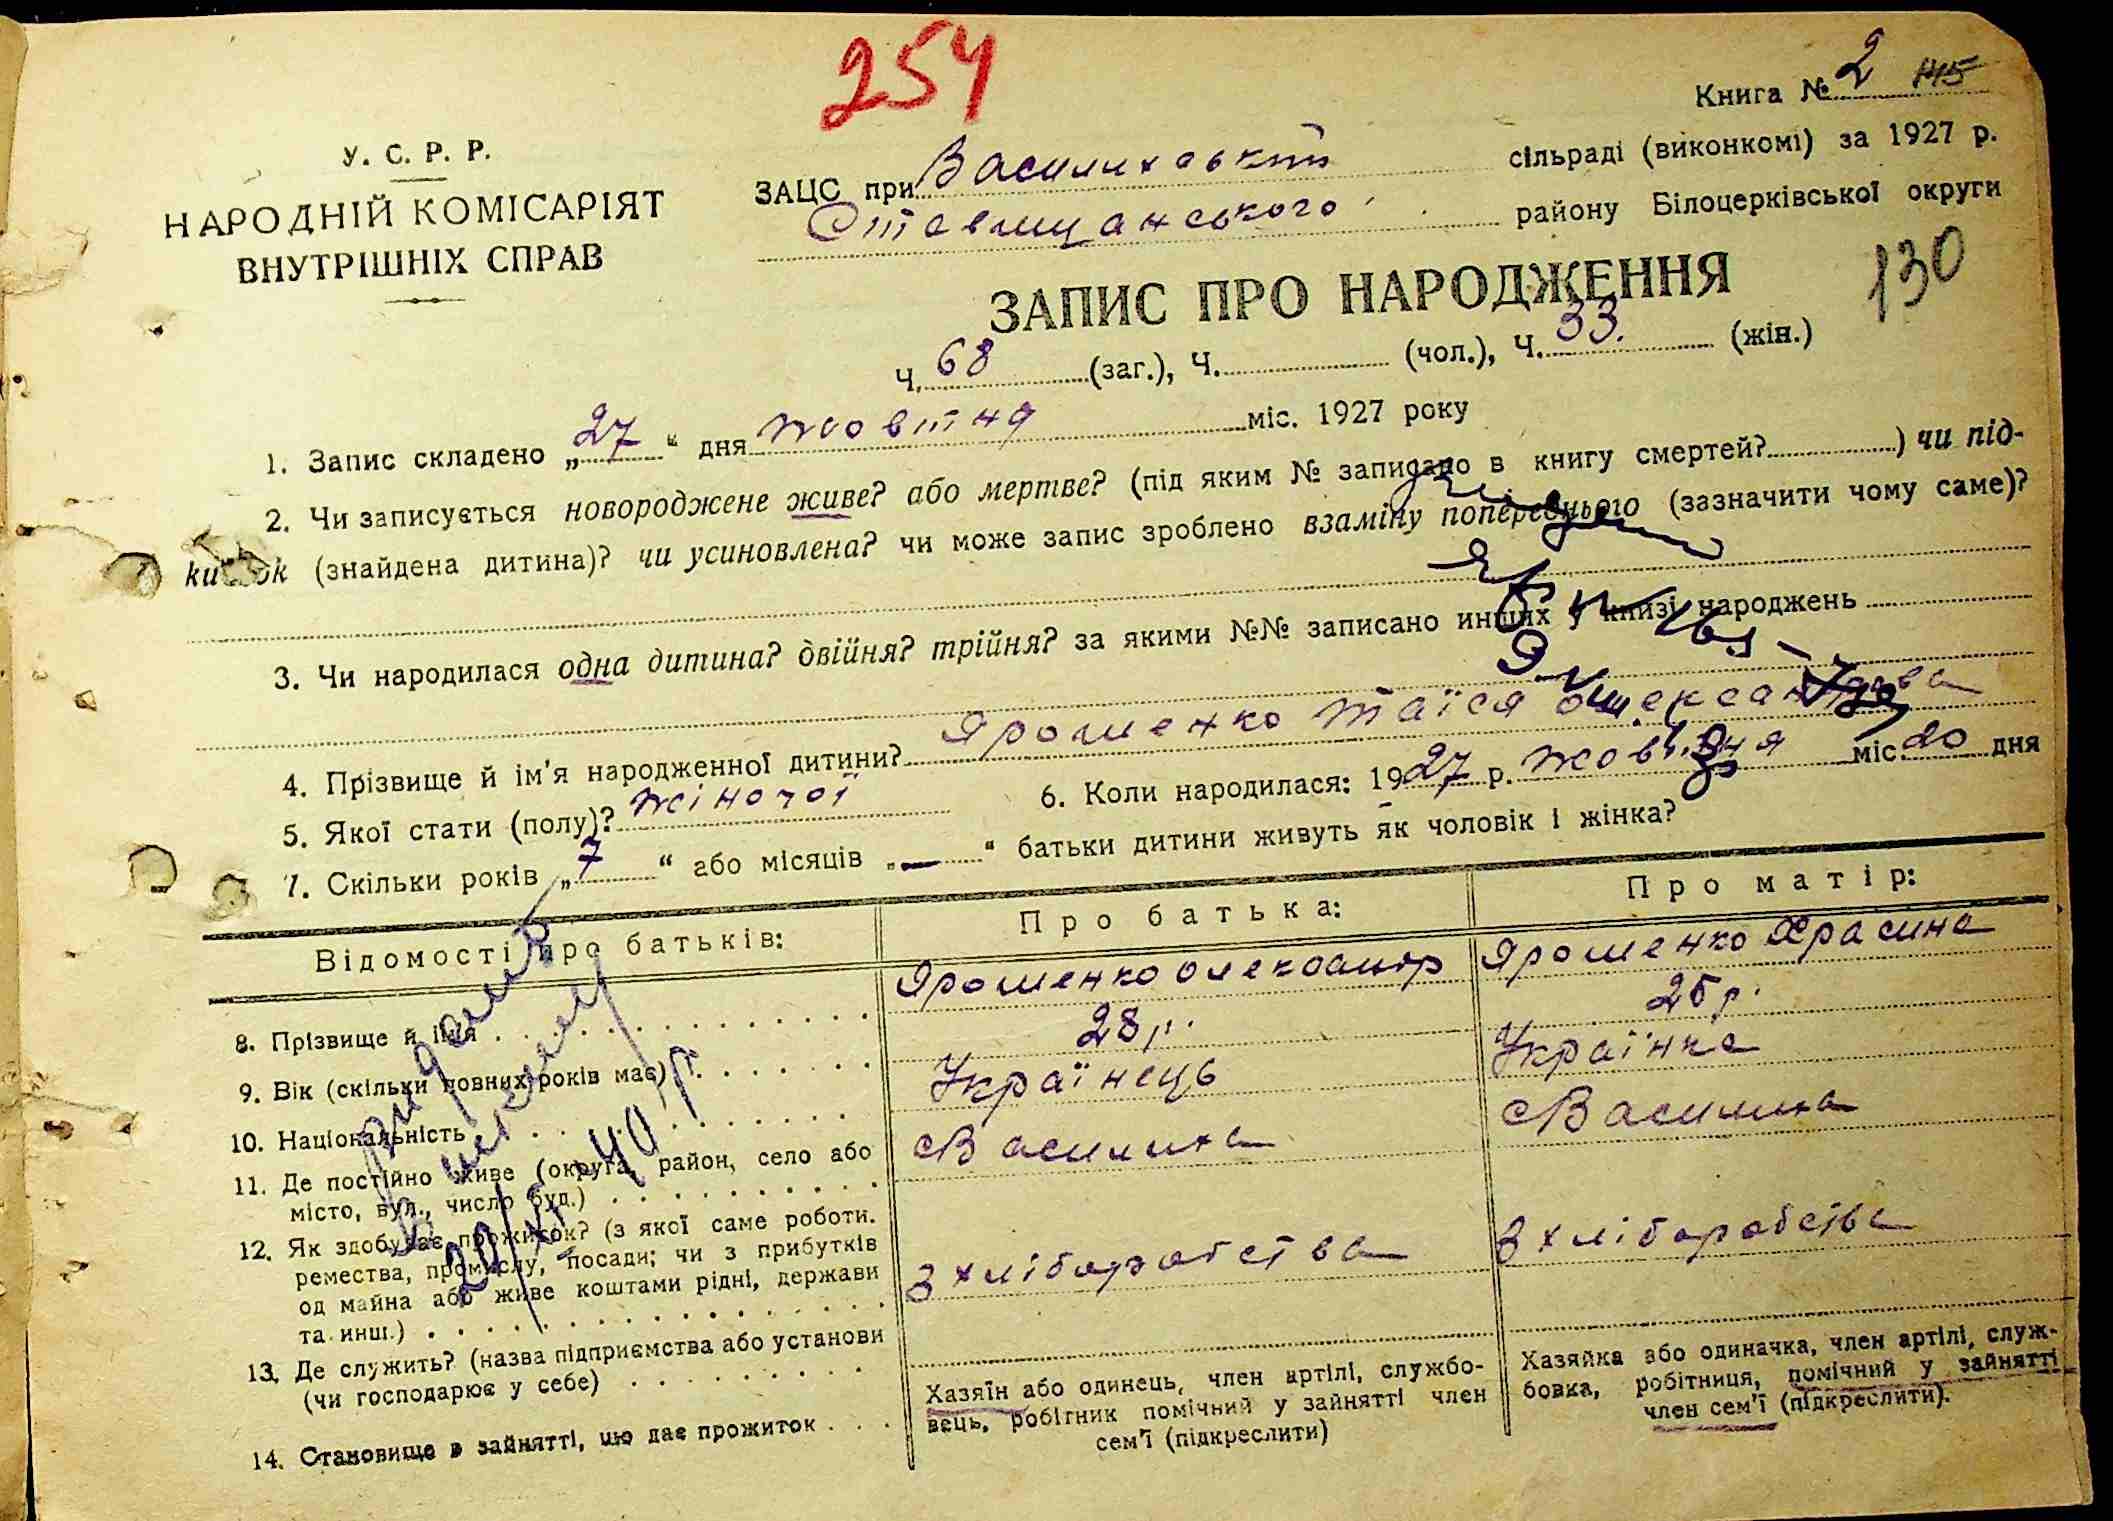 254
Книга № 2 145
У. С. Р. Р.
НАРОДНІЙ КОМІСАРІЯТ
ВНУТРІШНІХ СПРАВ
ЗАЦС при Василихський сільраді (виконкомі) за 1927 р.
Ставищанського району Білоцерківської округи
130
ЗАПИС ПРО НАРОДЖЕННЯ
Ч. 68 (заг.), Ч. (чол.), Ч. 33. (жін.)
1. Запис складено „27“ дня жовтня міс. 1927 року
2. Чи записується новороджене живе? або мертве? (під яким № записано в книгу смертей? ) чи під-
кидьок (знайдена дитина)? чи усиновлена? чи може запис зроблено взаміну попереднього (зазначити чому саме)?
3. Чи народилася одна дитина? двійня? трійня? за якими №№ записано инших у книзі народжень
4. Прізвище й ім'я народженної дитини? Ярошенко Таїся Олександрова
5. Якої стати (полу)? жіночої 6. Коли народилася: 1927 р. жовтня міс. 20 дня
7. Скільки років „7“ або місяців „—“ батьки дитини живуть як чоловік і жінка?
Відомості про батьків: Про батька: Про матір:
8. Прізвище й імя Ярошенко Олександр Ярошенко Храсина
9. Вік (скільки повних років має) 28 р. 25 р.
10. Національність Українець Українка
11. Де постійно живе (округа, район, село або
місто, вул., число буд.) с Василиха с Василиха
12. Як здобуває прожиток? (з якої саме роботи.
ремества, промислу, посади; чи з прибутків
од майна або живе коштами рідні, держави
та инш.) З хліборобства З хліборобства
13. Де служить? (назва підприємства або установи
(чи господарює у себе)
14. Становище в зайнятті, що дає прожиток
Хазяїн або одинець, член артілі, службо-
вець, робітник помічний у зайнятті член
сем'ї (підкреслити)
Хазяйка або одиначка, член артілі, служ-
бовка, робітниця, помічний у зайнятті
член сем'ї (підкреслити).